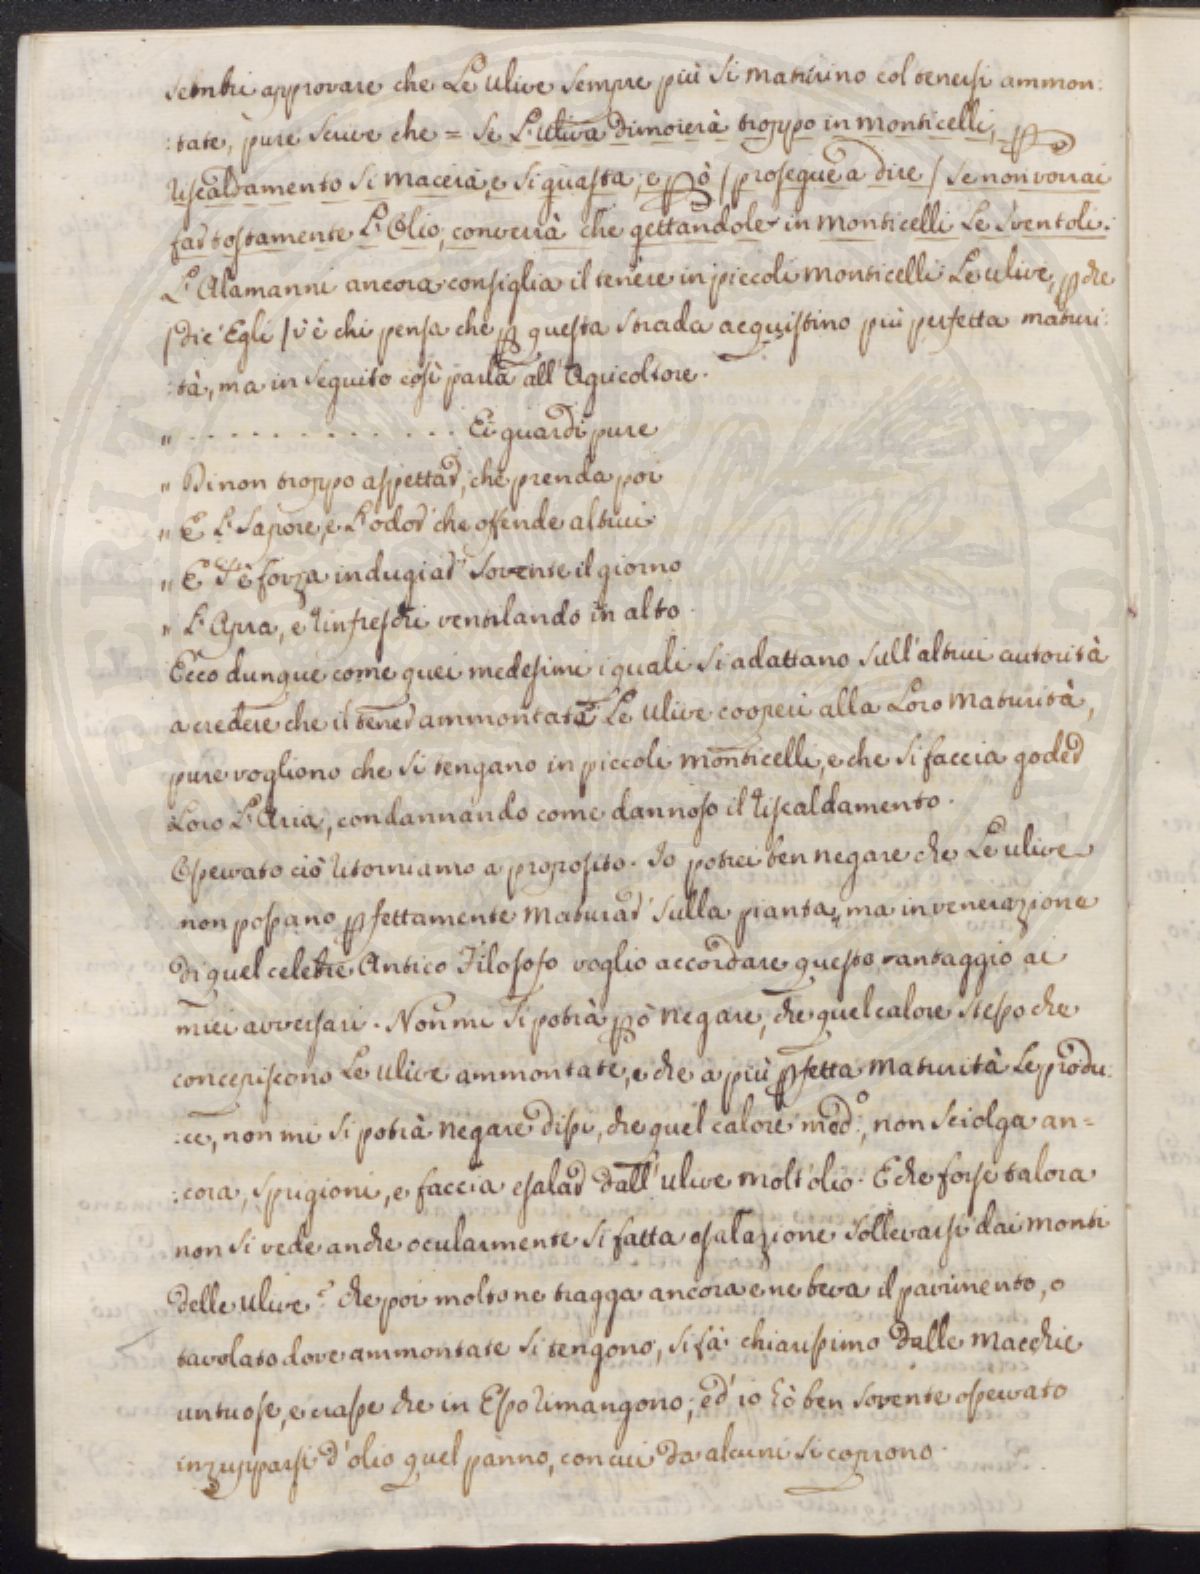 sembri approvare che Le Ulive sempre più si maturino col tenersi ammon:
:tate, pure scrive che = Se L'Uliva dimorerà troppo in monticelli, p
riscaldamento si macera, e si guasta; e pò / prosegue a dire / se non vorrai
far tostamente L'Olio, converrà che gettandole in monticelli Le sventoli.
L'Alamanni ancora consiglia il tenere in piccoli monticelli Le ulive, pche
/ dic' Egli / v'è chi pensa che p questa strada acquistino più perfetta maturi:
:tà, ma in seguito così parla all'Agricoltore.
" . . . . . . . . . . . . . Ei guardi pure
" Di non troppo aspettar, che prenda poi
" E L'sapore, e L'odor che offende altrui
" E s'è forza indugiar sovente il giorno
" L'apra, e rinfreschi ventilando in alto.
Ecco dunque come quei medesimi i quali si adattano sull'altrui autorità
a credere che il tener ammontate Le Ulive cooperi alla Loro maturità,
pure vogliono che si tengano in piccoli monticelli, e che si faccia goder
Loro L'Aria, condannando come dannoso il riscaldamento.
Osservato ciò ritorniamo a proposito. Io potrei ben negare che Le ulive
non possano pfettamente maturar sulla pianta, ma in venerazione
di quel celebre Antico Filosofo voglio accordare questo vantaggio ai
miei avversari. Non mi si potrà pò negare, che quel calore stesso che
concepiscono Le ulive ammontate, e che a più pfetta maturità Le produ:
:ce, non mi si potrà negare dissi, che quel calore med.º, non sciolga an=
:cora, sprigioni, e faccia esalar dall'ulive molt'olio. E che forse talora
non si vede anche ocularmente si fatta esalazione sollevarsi dai monti
delle ulive? che poi molto ne tragga ancora e ne beva il pavimento, o
tavolato dove ammontate si tengono, si fà chiarissimo dalle macchie
untuose, e crasse che in Esso rimangono; ed io hò ben sovente osservato
inzupparsi d'olio quel panno, con cui da alcuni si coprono.